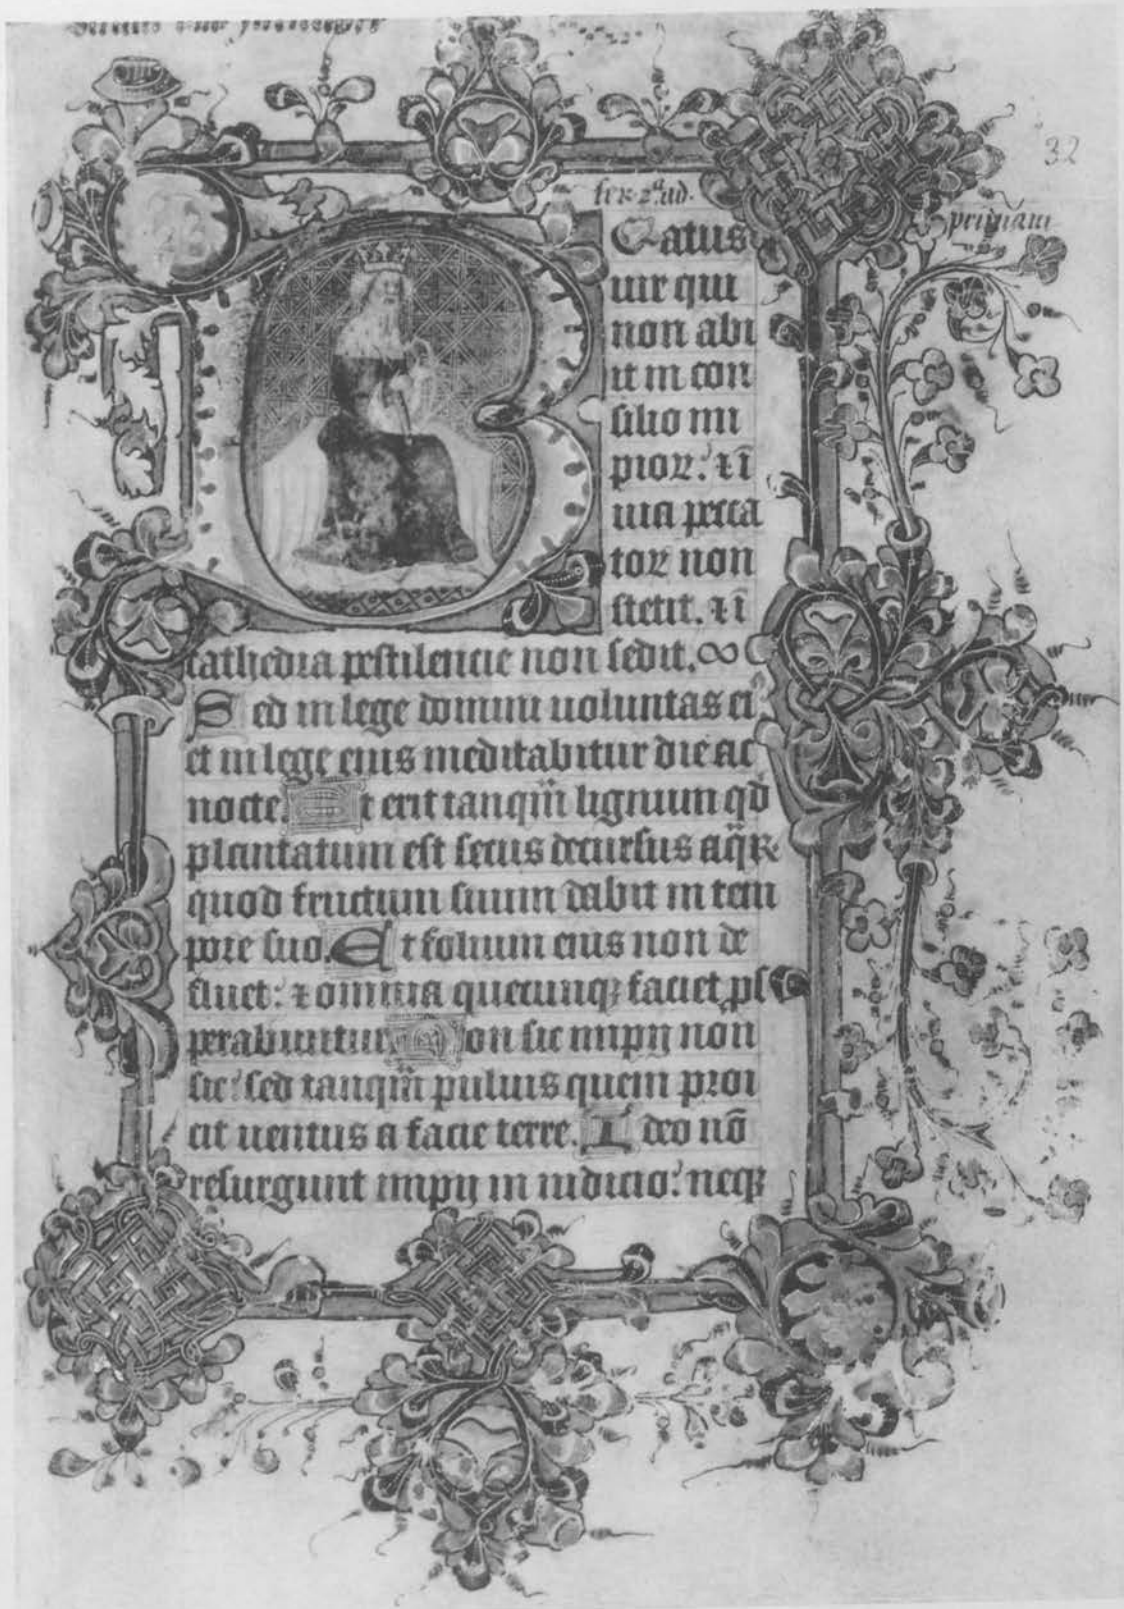 32
fer. 2ª. ad.
primam
Beatus
uir qui
non abi
it in con
silio im
pioꝝ: ⁊ ī
uia pecca
toꝝ non
stetit. ⁊ ī
cathedra pestilencie non sedit.
Sed in lege domini uoluntas eiꝰ
et in lege eius meditabitur die ac
nocte. Et erit tanqm̄ lignum qd̄
plantatum est secus decursus aq̄ꝝ
quod fructum suum dabit in tem
pore suo. Et folium eius non de
fluet: ⁊ omnia quecunqꝫ faciet ꝓs
perabuntur. Non sic impij non
sic: sed tanqm̄ puluis quem proi
cit uentus a facie terre. Ideo nō
resurgunt impij in iudicio: neqꝫ